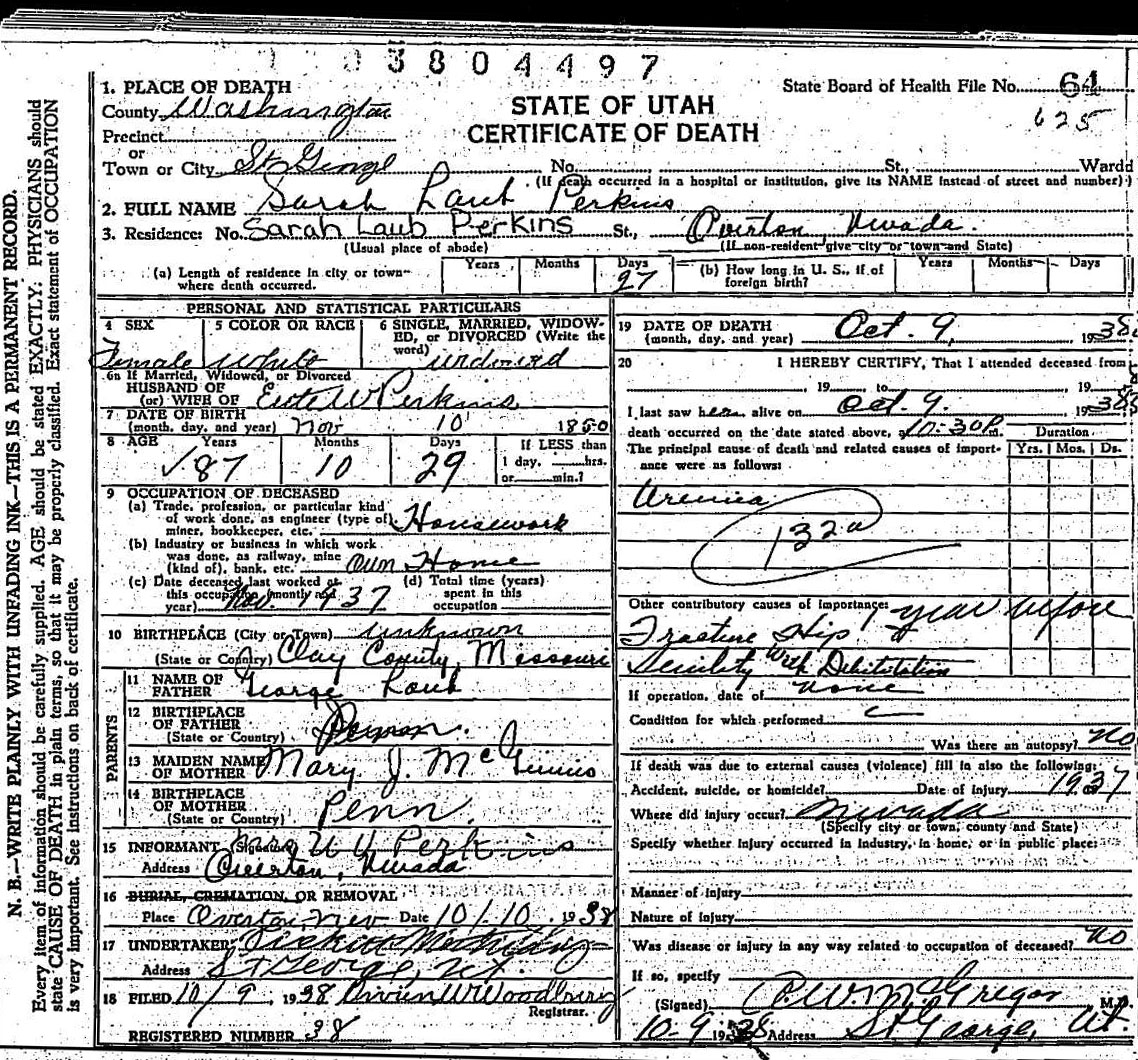 03804497
1. PLACE OF DEATH
County Washington
Precinct
or
Town or City St George No. St., Wardd
(If death occurred in a hospital or institution, give its NAME instead of street and number)
State Board of Health File No. 64
625
STATE OF UTAH
CERTIFICATE OF DEATH
2. FULL NAME Sarah Laub Perkins
3. Residence: No. Sarah Laub Perkins St., Overton, Nevada.
(Usual place of abode) (If non-resident give city or town and State)
(a) Length of residence in city or town where death occurred. Years Months Days 27
(b) How long in U. S., if of foreign birth? Years Months Days
PERSONAL AND STATISTICAL PARTICULARS
4 SEX Female
5 COLOR OR RACE White
6 SINGLE, MARRIED, WIDOWED, or DIVORCED (Write the word) widowed
6a If Married, Widowed, or Divorced
HUSBAND OF
(or) WIFE OF Ute W Perkins
7 DATE OF BIRTH
(month, day, and year) Nov 10 1850
8 AGE Years Months Days If LESS than
87 10 29 1 day, hrs.
or min.?
9 OCCUPATION OF DECEASED
(a) Trade, profession, or particular kind
of work done, as engineer (type of)
miner, bookkeeper, etc. Housework
(b) Industry or business in which work
was done, as railway, mine
(kind of), bank, etc. Own Home
(c) Date deceased last worked at
this occupation (month and
year) Nov. 1937
(d) Total time (years)
spent in this
occupation
10 BIRTHPLACE (City or Town) unknown
(State or Country) Clay County, Missouri
PARENTS
11 NAME OF
FATHER George Laub
12 BIRTHPLACE
OF FATHER
(State or Country)
13 MAIDEN NAME
OF MOTHER Mary J. McGinnis
14 BIRTHPLACE
OF MOTHER
(State or Country) Penn.
15 INFORMANT (Signature) Mrs U V Perkins
Address Overton, Nevada
16 BURIAL, CREMATION, OR REMOVAL
Place Overton, Nev Date 10/10. 1938
17 UNDERTAKER
Address St George, Ut.
18 FILED 10/9, 1938 W Woodbury
Registrar.
REGISTERED NUMBER 38
19 DATE OF DEATH
(month, day, and year) Oct. 9, 1938.
20 I HEREBY CERTIFY, That I attended deceased from
19 to 19
I last saw her alive on Oct. 9. 1938
death occurred on the date stated above, at 10-30P.m. Duration
The principal cause of death and related causes of importance were as follows: Yrs. Mos. Ds.
Uremia
132a
Other contributory causes of importance: 1 year before
Fracture Hip
Senility With Debilitation
If operation, date of none
Condition for which performed
Was there an autopsy? No
If death was due to external causes (violence) fill in also the following:
Accident, suicide, or homicide? Date of injury 1937
Where did injury occur? Nevada
(Specify city or town, county and State)
Specify whether injury occurred in industry, in home, or in public place:
Manner of injury
Nature of injury
Was disease or injury in any way related to occupation of deceased? No
If so, specify
(Signed) McGregor M.D.
10-9 1938 Address St George, Ut.
N. B.—WRITE PLAINLY WITH UNFADING INK—THIS IS A PERMANENT RECORD.
Every item of information should be carefully supplied. AGE should be stated EXACTLY. PHYSICIANS should
state CAUSE OF DEATH in plain terms, so that it may be properly classified. Exact statement of OCCUPATION
is very important. See instructions on back of certificate.